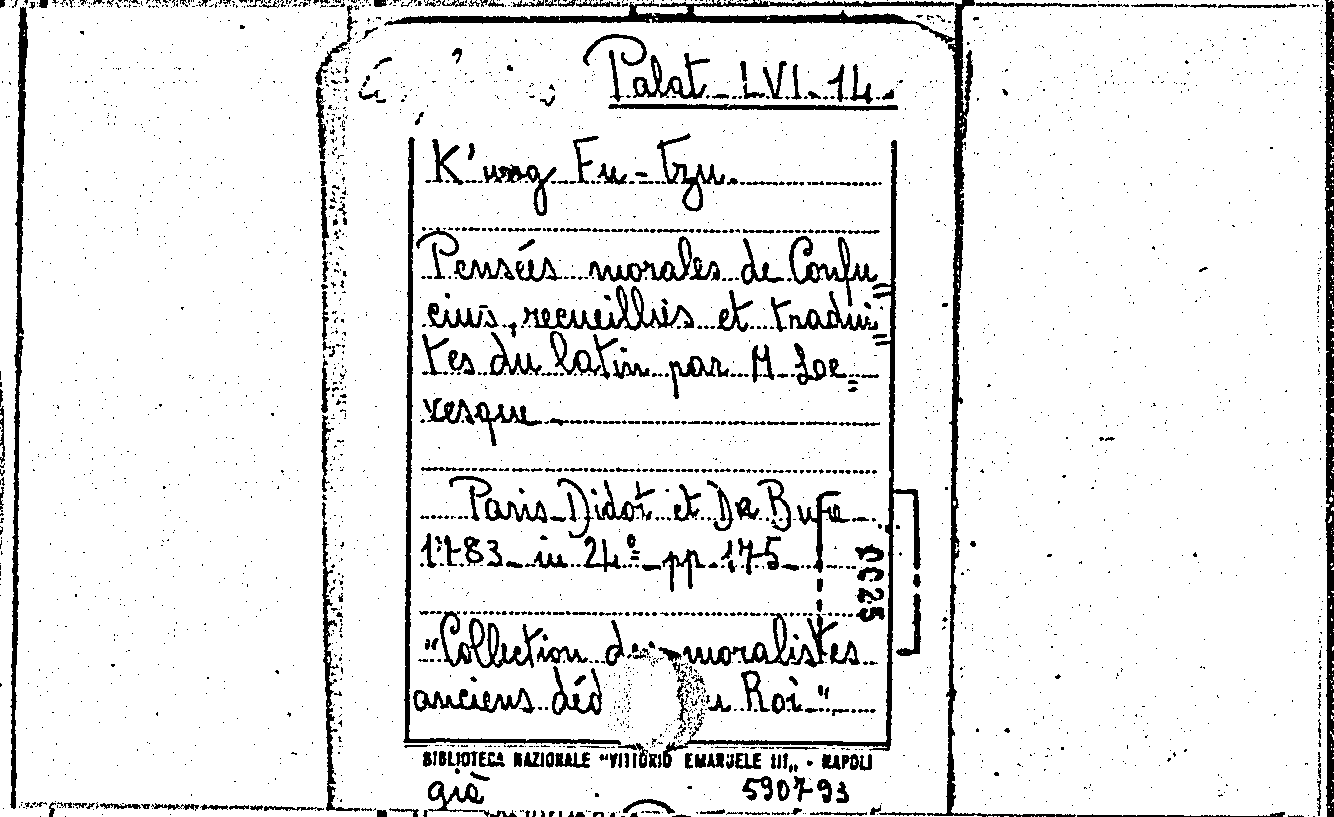 Palat. LVI. 14.
K'ung Fu-tzu.
Pensées morales de Confu=
cius, recueillies et tradui=
tes du latin par M. Loe=
vesque
Paris Didot et De Bure
1783 in 24º pp. 175
"Collection des moralistes
anciens déd u Roi"
0325
BIBLIOTECA NAZIONALE "VITTORIO EMANUELE III„ - NAPOLI
già 590793